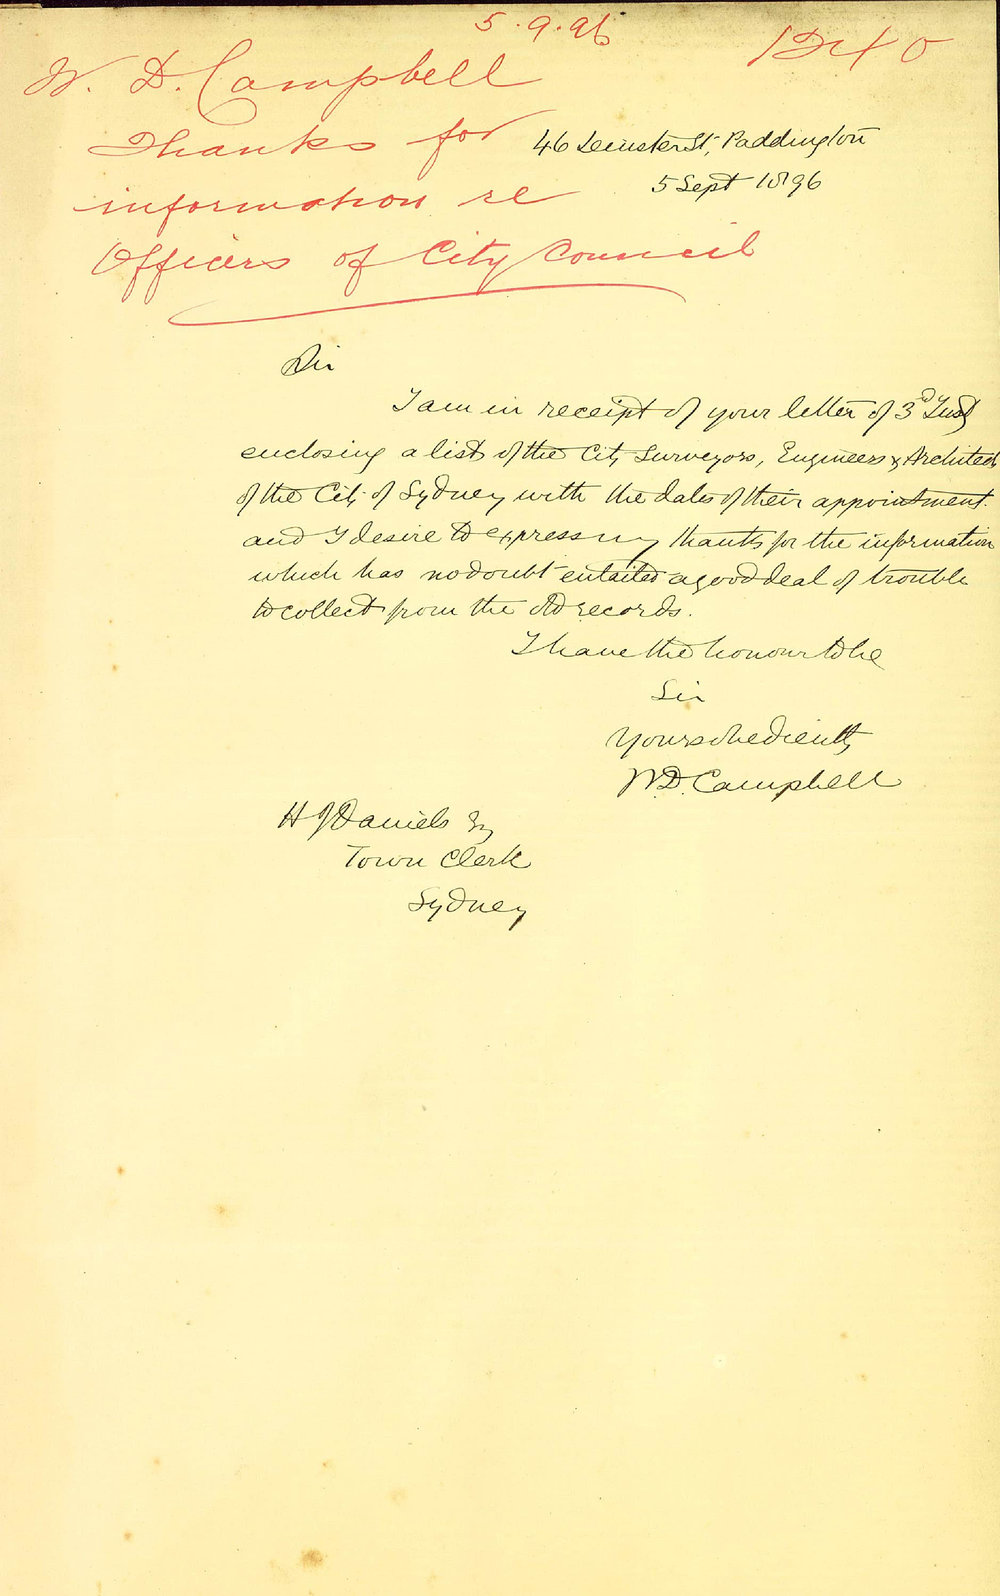 5.9.96
1240
W. D. Campbell
Thanks for
information re
Officers of City Council
46 Leinster St, Paddington
5 Sept 1896
Sir
I am in receipt of your letter of 3rd Inst
enclosing a list of the City Surveyors, Engineers & Architects
of the City of Sydney with the dates of their appointment
and I desire to express my thanks for the information
which has no doubt entailed a good deal of trouble
to collect from the old records.
I have the honour to be
Sir
Yours obediently
W.D. Campbell
H J Daniels Esq
Town Clerk
Sydney